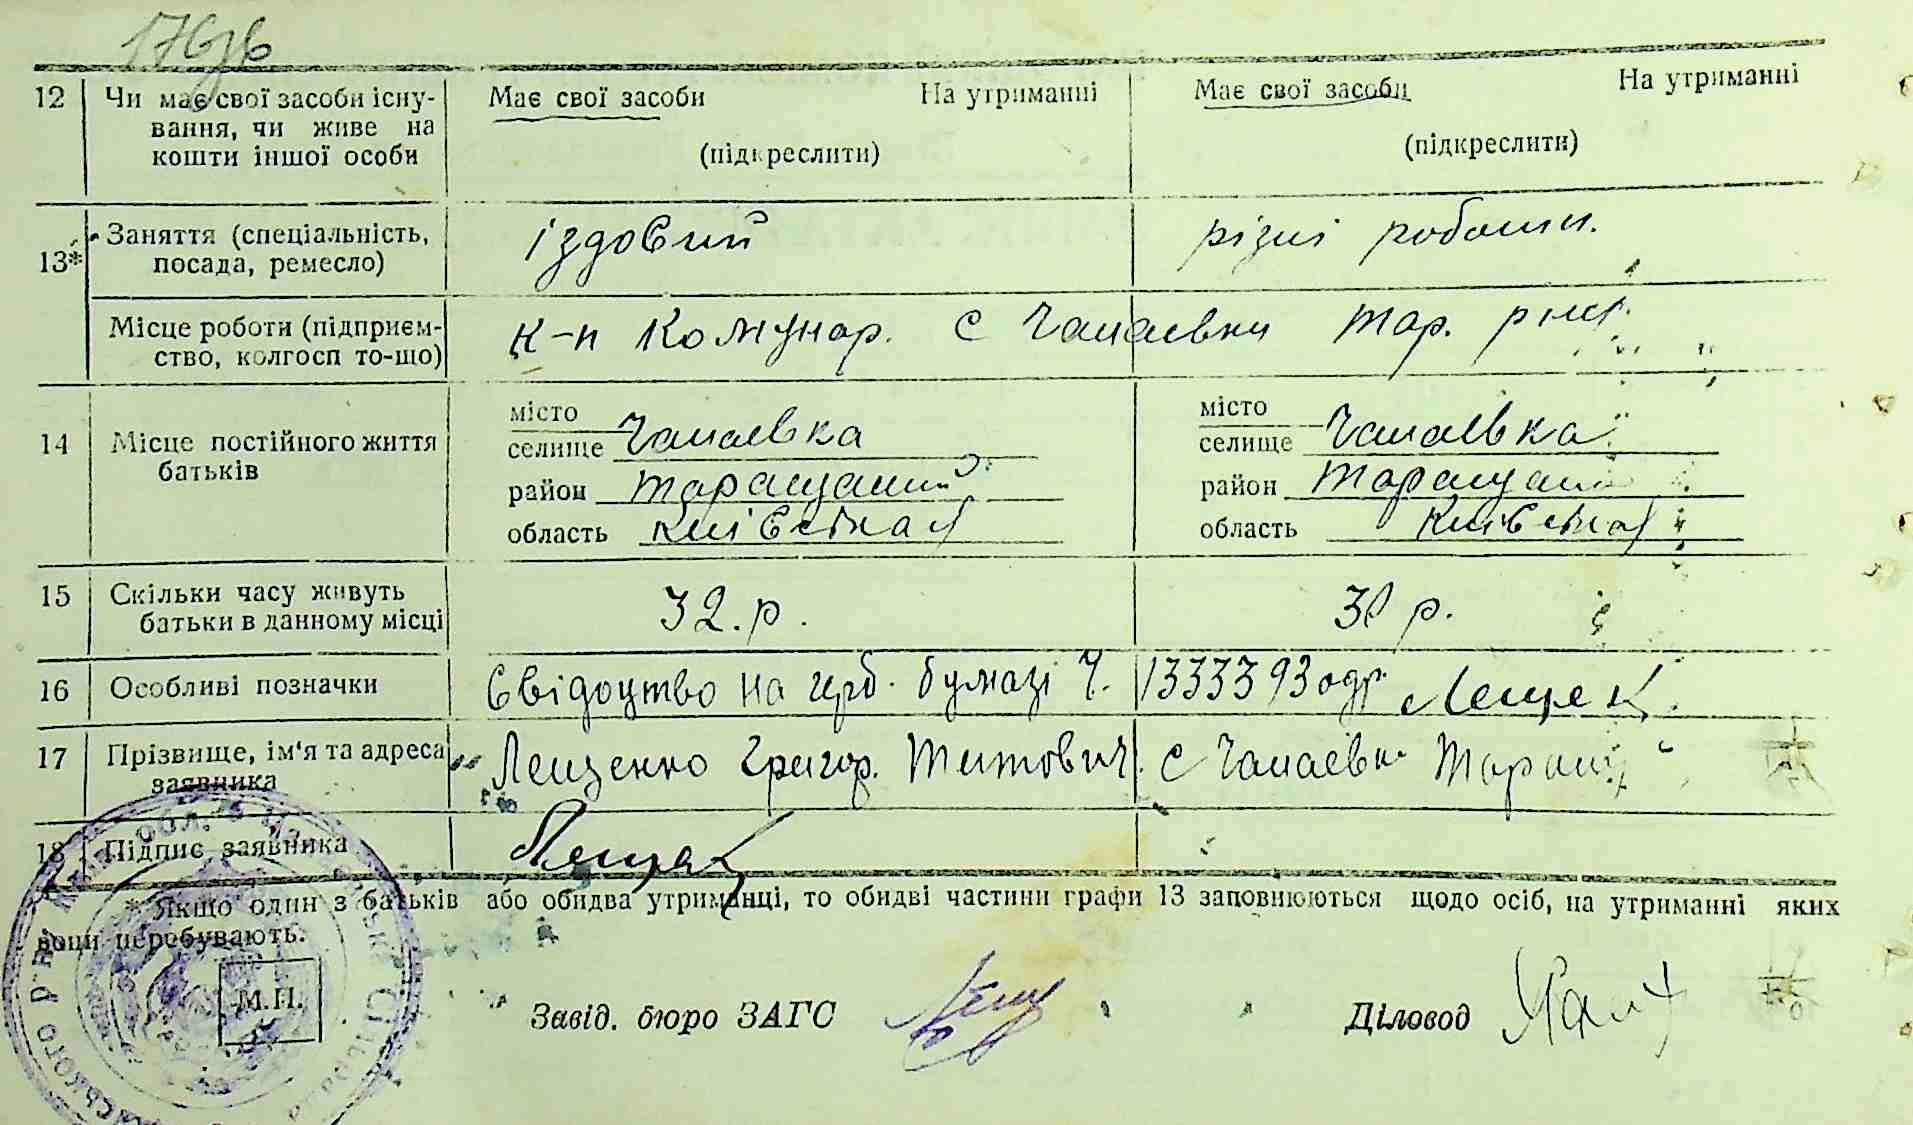 176зв
12 Чи має свої засоби існу- Має свої засоби На утриманні Має свої засоби На утриманні
вання, чи живе на
кошти іншої особи (підкреслити) (підкреслити)
13* Заняття (спеціальність, їздовий різні роботи.
посада, ремесло)
Місце роботи (підприєм- к-п Комунар. с Чапаєвки Тар. р
ство, колгосп то-що)
місто місто
14 Місце постійного життя селище Чапаевка селище Чапаевка
батьків район Таращаний район Таращан
область Київська область Київська
15 Скільки часу живуть 32.р. р.
батьки в данному місці
16 Особливі позначки Свідоцтво на герб. бумазі Ч. 1333393 одр. Лещен
17 Прізвище, ім'я та адреса Лещенко Григор. Титович. с Чапаевк Таращ
заявника
18 Підпис заявника Лещен
* Якщо один з батьків або обидва утриманці, то обидві частини графи 13 заповнюються щодо осіб, на утриманні яких
вони перебувають.
М.П. Завід. бюро ЗАГС Лещ Діловод